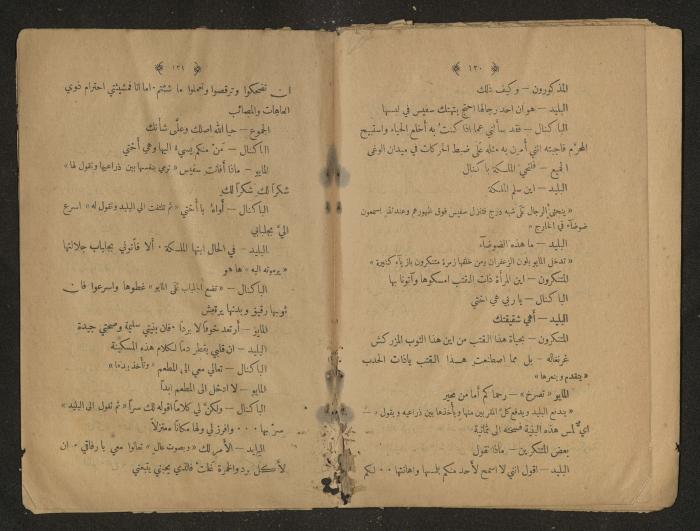 ﴿ ١٣٠ ﴾
المذكورون — وكيف ذلك
البليد — هو ان احد رجالها احتج بتهتك سفيس في لبسها
الباكنال — فقد سألني عما اذا كنت به أخلع الحياء واستبيح
المحرّم فاجبته انني أمرن به مثله على ضبط الحركات في ميدان الوغى
الجميع — فلتحي الملكة باكنال
البليد — اين سلم الملكة
« ينحني الرجال على شبه درج فتنزل سفيس فوق ظهورهم وعندئذ يسمعون
ضوضاء في الخارج »
البليد — ما هذه الضوضاء
« تدخل المايو بلون الزعفران ومن خلفها زمرة متنكرون بازياء كثيرة »
المتنكرون — اين المرأة ذات القتب امسكوها وآتونا بها
الباكنال — يا ربي هي اختي
البليد — أهي شقيقتك
المتنكرون — بحياة هذا القتب من اين هذا الثوب المزركش
غرنغاله — بل مما اصطنعت هذا القتب ياذات الحدب
« يتقدم ويهزها »
المايو « تصرخ » — رحماكم أما من مجير
« يندفع البليد ويدفع كل انفر بين منها ويأخذها بين ذراعيه ويقول » —
ايّ لمس هذه البنية فسحقته الى ثمانية
بعض المتنكرين — ماذا تقول
البليد — اقول انني لا اسمح لأحد منكم بلمسها واهانتها ٠٠ لكم
﴿ ١٣١ ﴾
ان تضحكوا وترقصوا وتعملوا ما شئتم . اما انا فمشيئتي احترام ذوي
العاهات والمصائب
الجموع — حيا الله اصلك وعلّى شأنك
الباكنال — مَنْ منكم يسيء اليها وهي أختي
المايو — ماذا أفانت سفيس « ترمي بنفسها بين ذراعيها وتقول لها »
شكرًا لك شكرًا لك
الباكنال — أواه يا أختي « ثم تلتفت الى البليد وتقول له » اسرع
اليّ بجلبابي
البليد — في الحال ايتها الملكة . ألا فأتوني بجلباب جلالتها
« يرمونه اليه » ها هو
الباكنال — « تضع الجلباب على المايو » غطوها واسرعوا فان
ثوبها رقيق وبدنها يرتعش
المايو — أرتعد خوفاً لا برداً . فان بنيتي سليمة وصحتي جيدة
البليد — ان قلبي يقطر دماً لكلام هذه المسكينة
الباكنال — تعالي معي الى المطعم « وتأخذ بيدها »
المايو — لا ادخل الى المطعم ابداً
الباكنال — ولكن لي كلاماً اقوله لك سراً « ثم تقول الى البليد »
سر بها ٠٠٠ وافرز لي ولها مكاناً معتزلاً
البليد — الأمر لك « وبصوت عال » تعالوا معي يا رفاقي . ان
لأكل برد والخمرة فالذي يحبني يتبعني